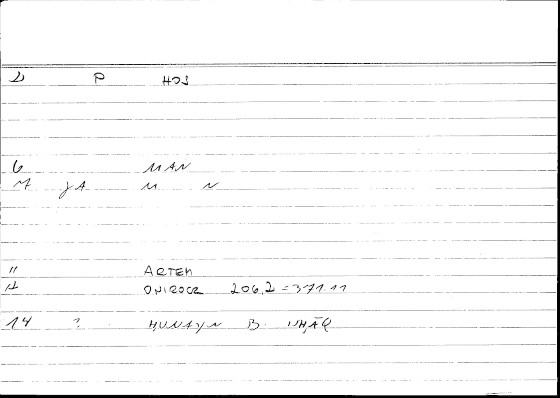 P HDJ
6 MAN
7 JA M N
11 ARTEM
12 ONIROCR 206,2 = 371.11
14 ? ḤUNAYN B. ISḤĀQ